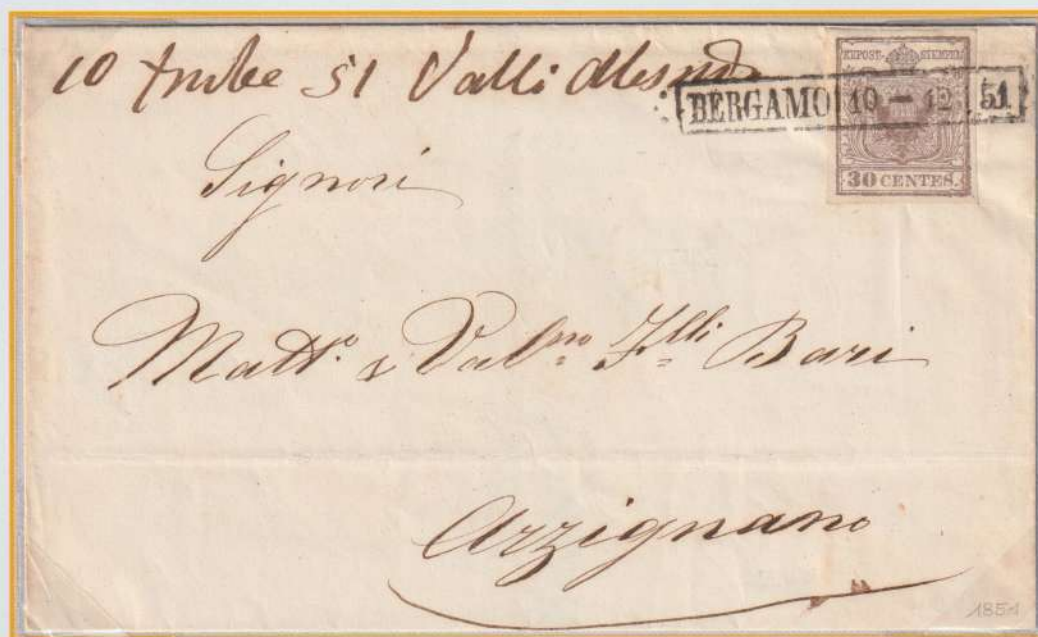 10 51 Valli
BERGAMO 10 - 12 51
KKPOST-STEMPEL
30 CENTES.
Signori
Matt.º & Val.mo F.lli Bari
Arzignano
1851